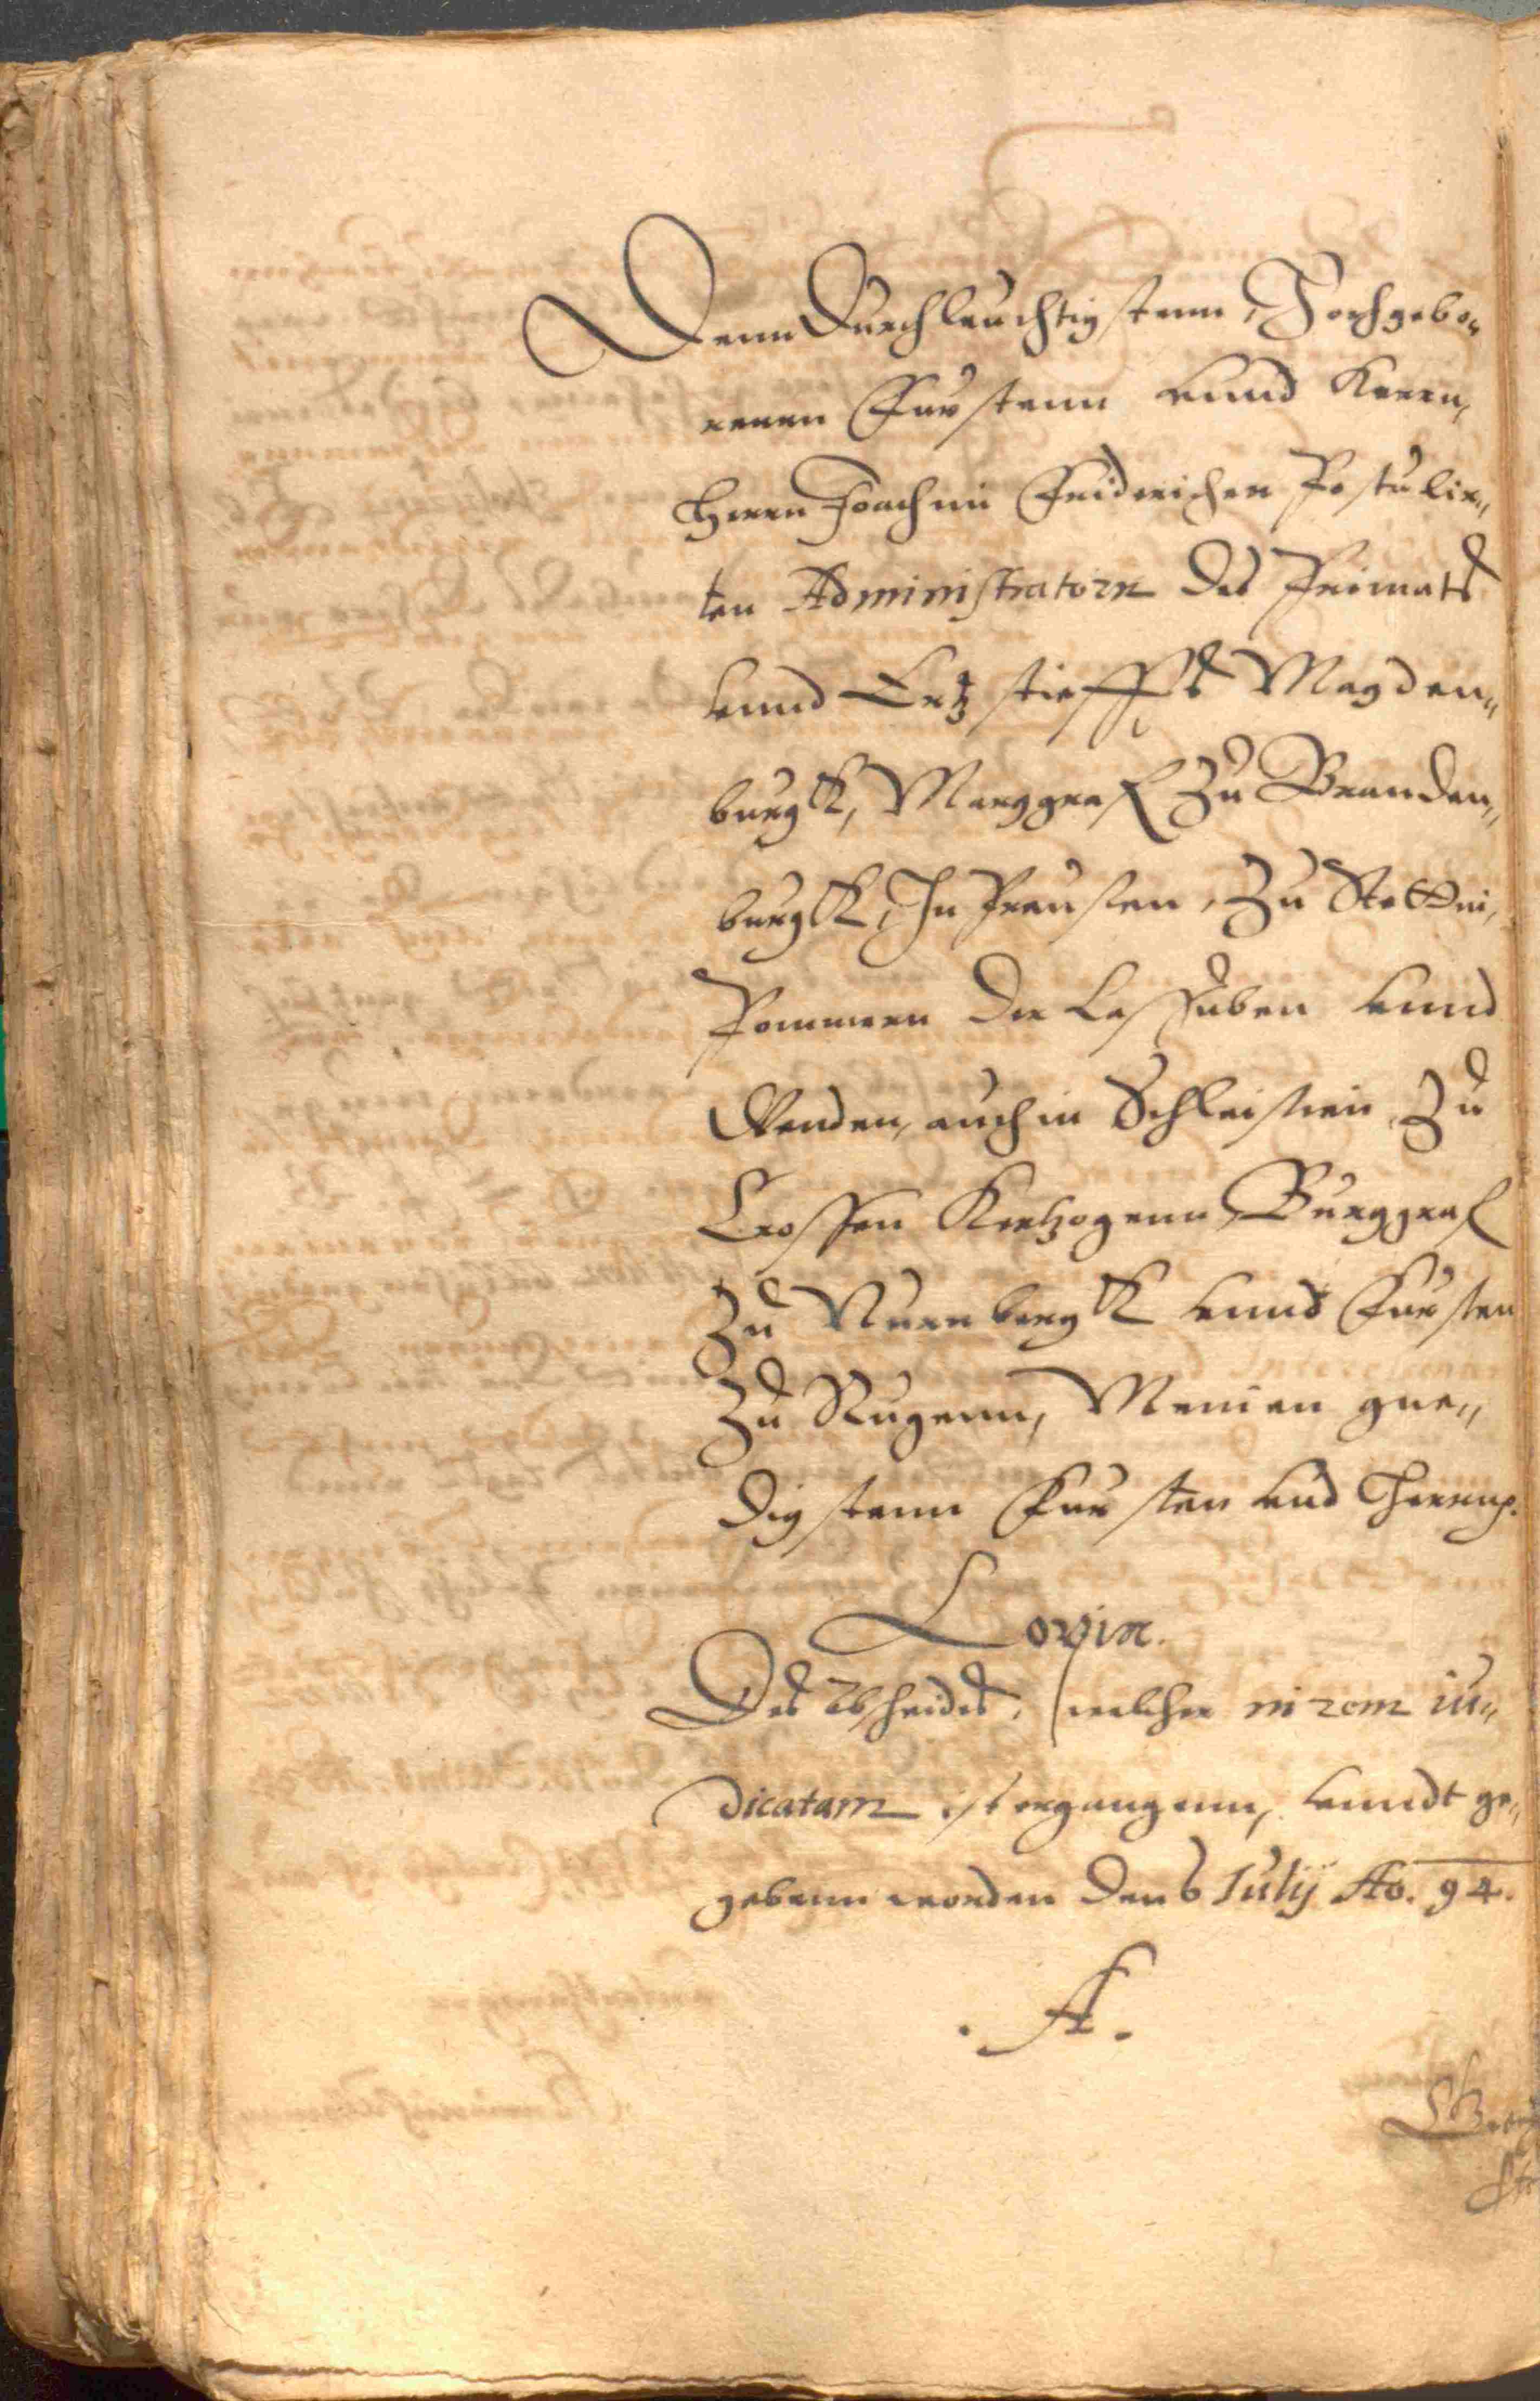 Denn Durchleuchtigstenn, Hochgebo„
renen Furstenn vnnd Herrn,
Herrn Joachim Friderichen Postulir„
ten Administratorn des Primats
vnnd Ertzstieffts Magden„
burgk, Marggraf zu Branden„
burgk, In Preussen, zu Stettin,
Pommern der Cassuben vnnd
Wenden, auch in Schleisien, zu
Crossen Hertzogenn, Burggraf
zu Nurnbergk vnnd Fursten
zu Rugenn, Meinen gne„
digstenn Fursten vnd Herrnn.
Copia.
Des Abscheidts, welcher in rem iu„
dicatam ist ergangenn, vnndt ge„
gebenn worden den 6 Julij Ao. 94.
. A .